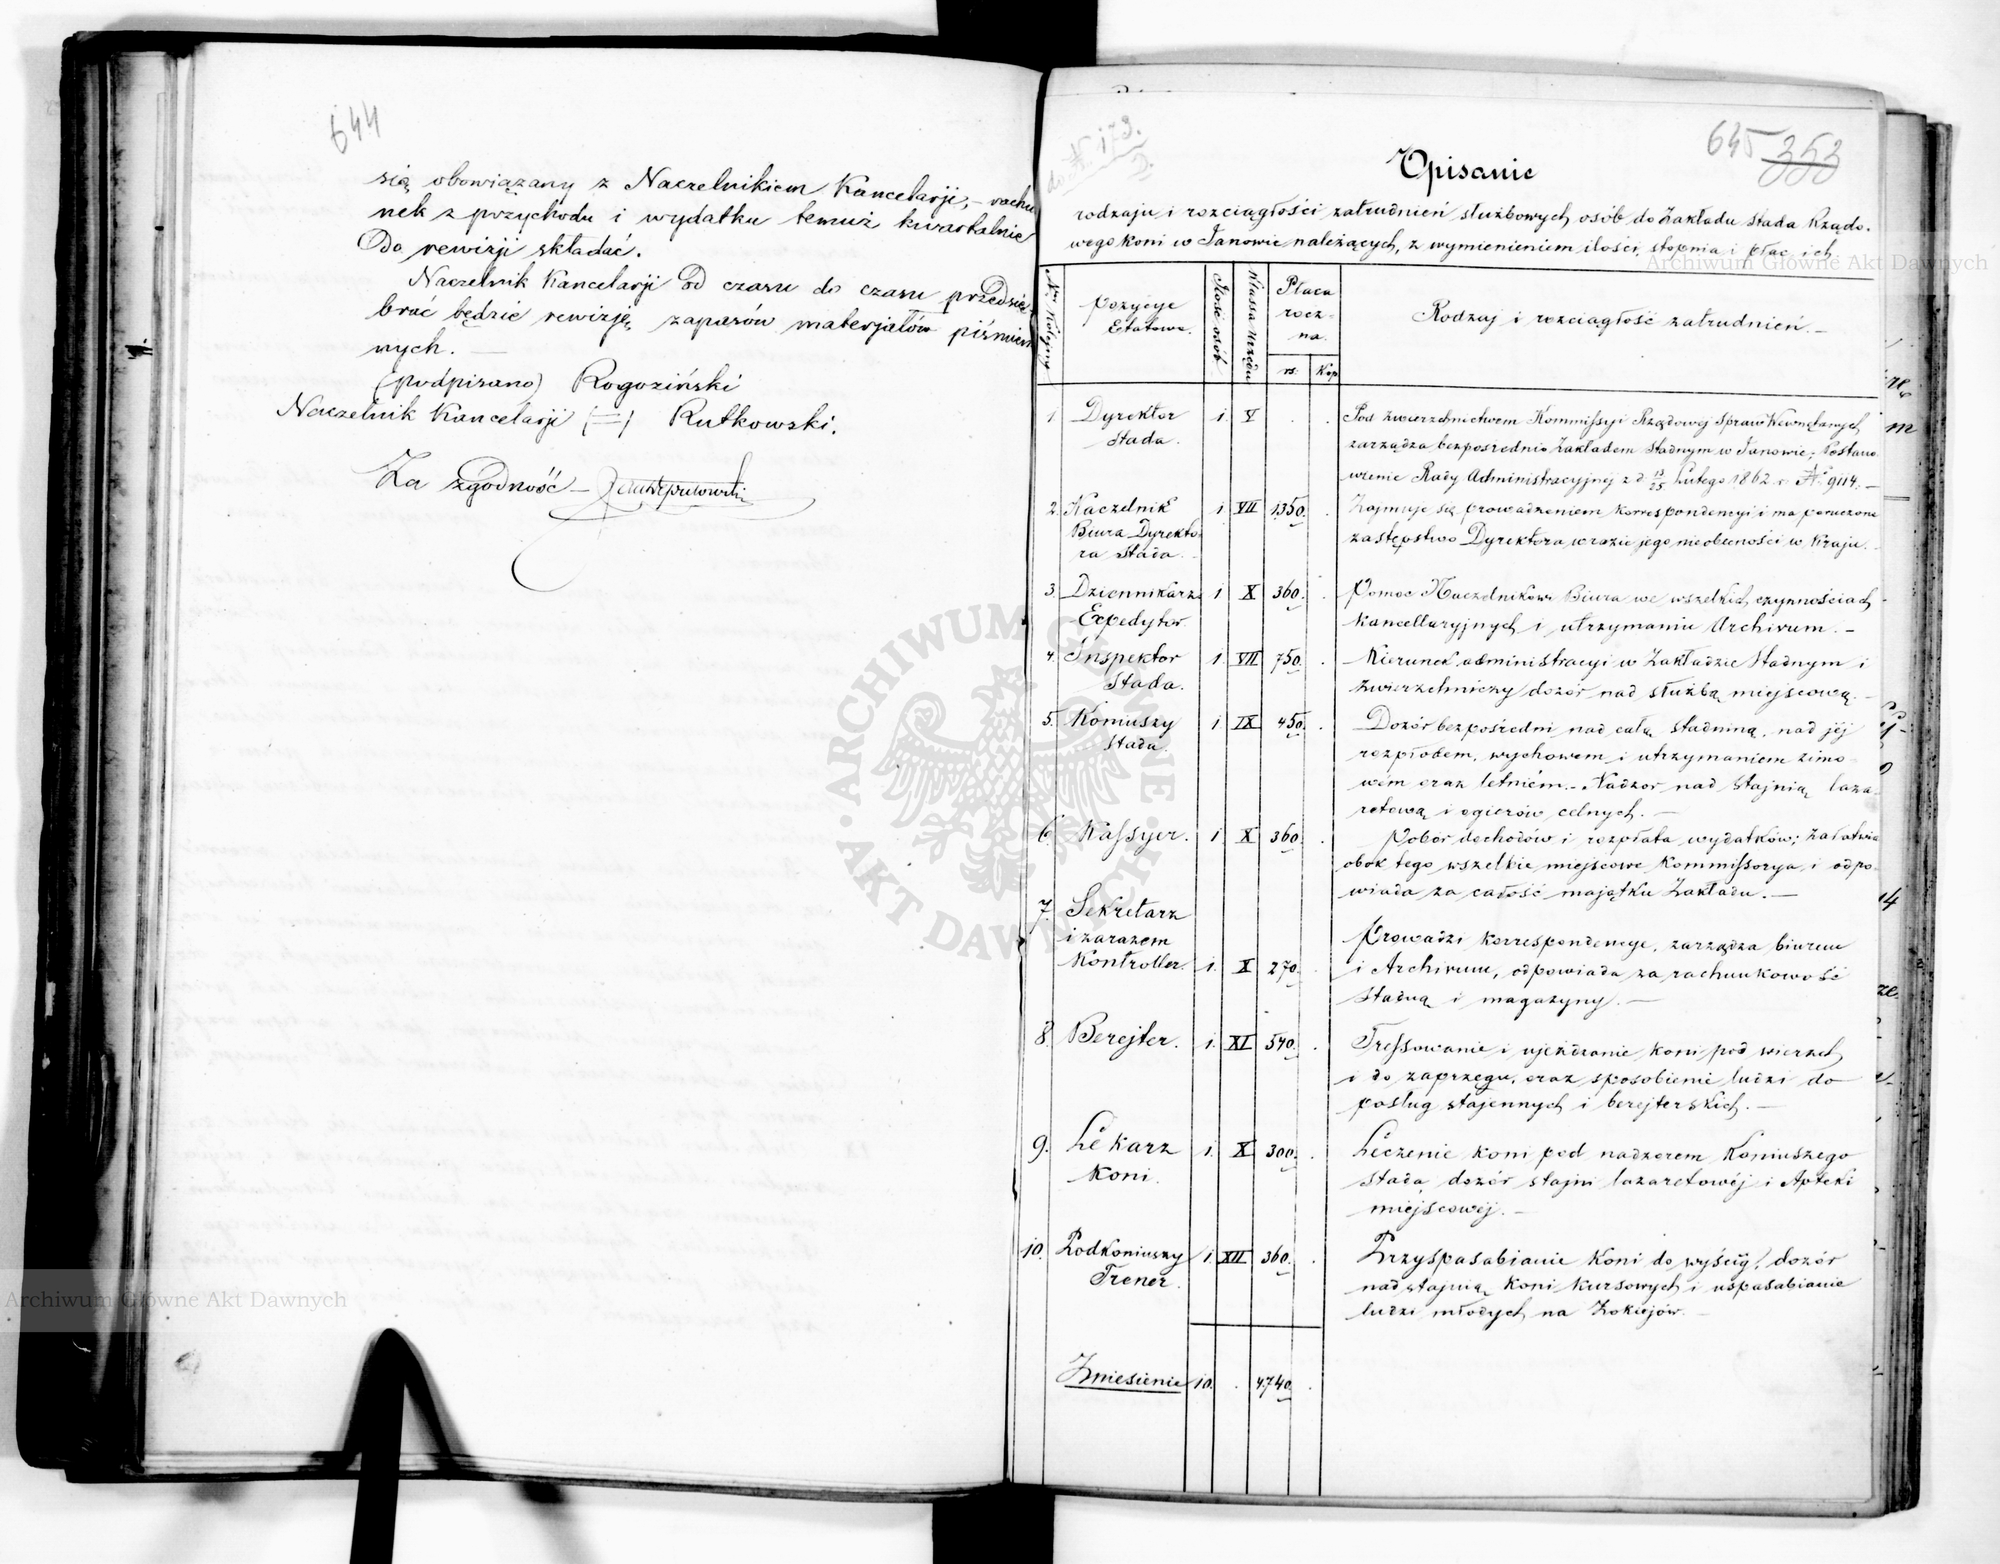 644
się obowiązany z Naczelnikiem Kancelarji, – rachu
nek z przychodu i wydatku temuż kwartalnie
do rewizji składać.
Naczelnik Kancelarji od czasu do czasu przedsię
brać będzie rewizję, zapasów materjałów piśmien
nych. —
(podpisano) Rogoziński
Naczelnik Kancelarji (=) Rutkowski.
Za zgodność –
645 353
do N. 173.
Opisanie
rodzaju i rozciągłości zatrudnień służbowych osób do Zakładu Stada Rządo-
wego Koni w Janowie należących, z wymienieniem ilości, stopnia i płac ich
Nr Kolejny
Pozycye Etatowe.
Ilość osób
Klassa Urzędu
Płaca rocz- na.
rs. Kop
Rodzaj i rozciągłość zatrudnień. —
1 Dyrektor 1. V . . Pod zwierzchnictwem Kommissyi Rządowej Spraw Wewnętrznych
Stada. zarządza bezpośrednio Zakładem Stadnym w Janowie; Postano
wienie Rady Administracyjnej z d 13/25 Lutego 1862 r. N° 9114. —
2. Naczelnik 1 VII 1350. . Zajmuje się prowadzeniem korrespondencyi i ma poruczone
Biura Dyrekto- zastępstwo Dyrektora w razie jego nieobecności w Kraju. —
ra Stada.
3. Dziennikarz 1 X 360. . Pomoc Naczelnikowi Biura we wszelkich czynnościach
Expedytor kancellaryjnych i utrzymaniu Archivum. —
4. Inspektor 1. VII 750. . Kierunek administracyi w Zakładzie Stadnym i
Stada. zwierzchniczy dozór nad służbą miejscową. —
5. Koniuszy 1. IX 450. . Dozór bezpośredni nad całą stadniną, nad jej
Stada. rozpłodem, wychowem i utrzymaniem zimo-
wém oraz letniém. – Nadzor nad stajnią laza-
retową i ogierów celnych. —
6. Kassyer. 1. X 360. . Pobór dochodów i rozpłata wydatków; załatwia
obok tego wszelkie miejscowe Kommissorya i odpo-
wiada za całość majątku Zakładu. —
7. Sekretarz
i zarazem Prowadzi korrespondencye, zarządza biurem
Kontroller. 1. X 270. . i Archivum, odpowiada za rachunkowość
Stadną i magazyny. —
8. Berejter. 1. XI 540. . Tressowanie i ujeżdżanie koni pod wierzch
i do zaprzęgu, oraz sposobienie ludzi do
posług stajennych i berejterskich. —
9. Lékarz 1. X 300. . Léczenie koni pod nadzorem Koniuszego
Koni. Stada dozór stajni lazaretowéj i Apteki
miejscowéj. —
10. Podkoniuszy 1. XII 360. . Przysposabianie koni do wyścig., dozór
Trener. nad stajnią koni kursowych i usposabianie
ludzi młodych na Żokiejów. —
Zniesienie 10. . 4.740. .
ARCHIWUM GŁÓWNE AKT DAWNYCH
Archiwum Główne Akt Dawnych
Archiwum Główne Akt Dawnych